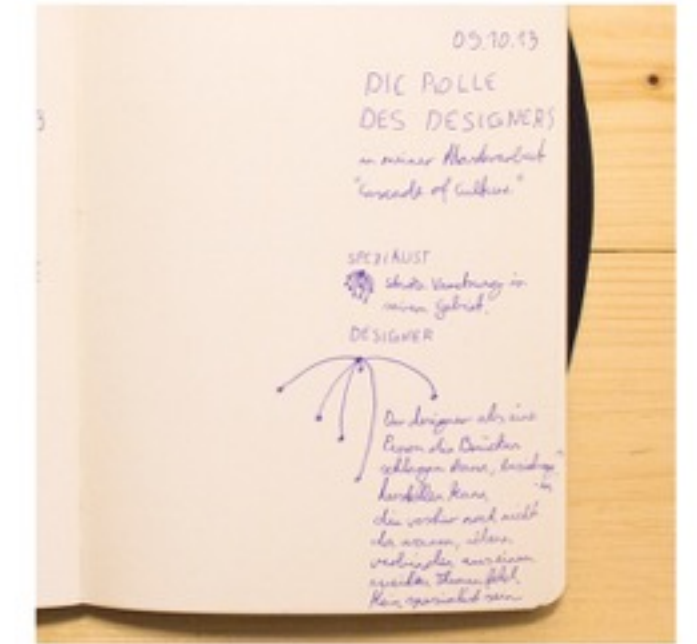 09.10.13
DIE ROLLE
DES DESIGNERS
in meiner Masterarbeit
"Cascade of Culture"
SPEZIALIST
starke Vernetzung in
seinem Gebiet.
DESIGNER
Der designer als eine
Person die Brücken
schlagen kann,
herstellen kann,
die vorher noch nicht
da waren,
verbinden aus einem
weiten Themenfeld
Kein spezialist sein